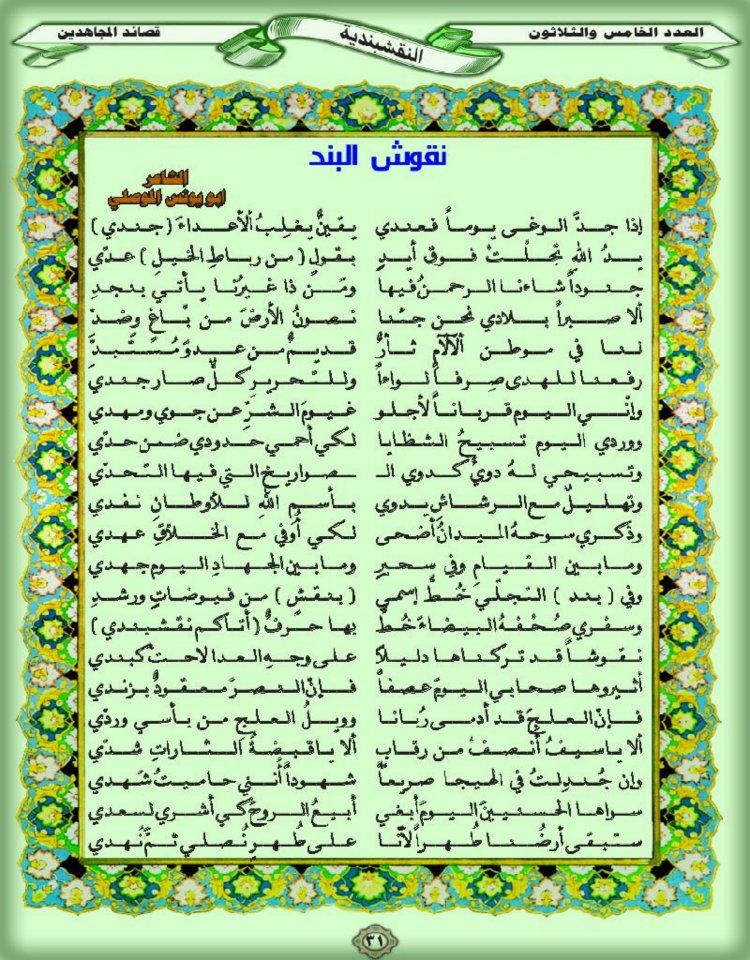 العدد الخامس والثلاثون النقشبندية قصائد المجاهدين
نقوش البند
الشاعر
ابو يونس الموصلي
إذا جدَّ الوغى يوماً فعندي يقينٌ يغلبُ الأعداءَ (جندي)
يدُ اللهِ تجلّتْ فوق أيدٍ بقولٍ (من رباطِ الخيلِ) عدّي
جنوداً شاءنا الرحمنُ فيها ومَن ذا غيرُنا يأتي بنجدِ
ألا صبراً بلادي نحن جئنا نصونُ الأرضَ من بّاغٍ وضدّ
لنا في موطن الآلام ثأرٌ قديمٌ من عدوٍّ مُستبدّ
رفعنا للهدى صِرفاً لواءاً وللتحريرِ كلٌّ صار جندي
وإنّي اليوم قرباناً لأجلو غيومَ الشرِّ عن جوي ومهدي
ووردي اليوم تسبيحُ الشظايا لكي أحمي حدودي ضمن حدّي
وتسبيحي لهُ دويٌّ كدوي الـ ـصواريخِ التي فيها التحدّي
وتهليلٌ مع الرشاشِ يدوي بأسمِ اللهِ للأوطانِ نفدي
وذكري سوحةُ الميدانِ أضحى لكي أوفي مع الخلّاقِ عهدي
وما بين القيامِ وفي سحيرٍ وما بين الجهادِ اليوم جهدي
وفي (بند) التجلّي خُطَّ إسمي (بنقشٍ) من فيوضاتٍ ورشدِ
وسفري صُحْفهُ البيضاءَ خُطَّ بها حرفٌ (أتاكم نقشبندي)
نقوشاً قد تركناها دليلاً على وجهِ العدا لاحتْ كبندي
أثيروها صحابي اليومَ عصفاً فإنّ النصرَ معقودٌ بزندي
فإنّ العلجَ قد أدمى رُبانا وويلُ العلجِ من بأسي وردّي
ألا ياسيفُ أنصفْ من رقابٍ ألا ياقبضةَ الثاراتِ شدّي
وإن جُندلتُ في الهيجا صريعاً شهوداً أنني حاميتُ شهدي
سواها الحسنيينَ اليومَ أبغي أبيعُ الروحَ كي أشري لسعدي
ستبقى أرضُنا طُهراً لأنّا على طُهرٍ نُصلي ثمَّ نُهدي
٣١